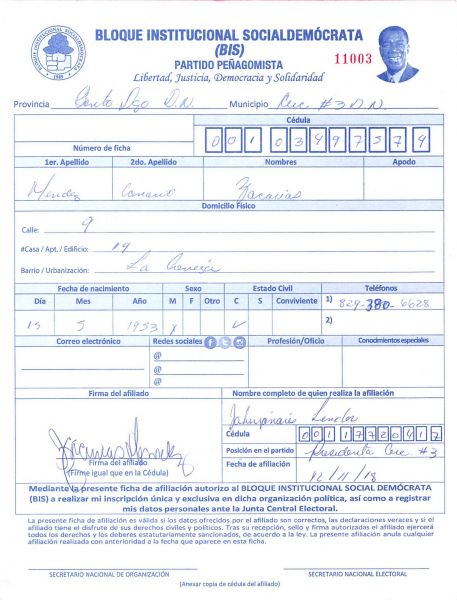 BLOQUE INSTITUCIONAL SOCIALDEMÓCRATA
(BIS)
PARTIDO PEÑAGOMISTA
Libertad, Justicia, Democracia y Solidaridad
11003
BLOQUE INSTITUCIONAL SOCIALDEMOCRATA
1989
Provincia Santo Dgo D.N. Municipio Circ #3 D.N.
Cédula
Número de ficha 001 0349757 9
1er. Apellido 2do. Apellido Nombres Apodo
Mendez Zacarias
Domicilio Físico
Calle: 9
#Casa / Apt. / Edificio: 19
Barrio / Urbanización: La
Fecha de nacimiento Sexo Estado Civil Teléfonos
Día Mes Año M F Otro C S Conviviente 1) 829-380-6628
15 5 1953 X ✓ 2)
Correo electrónico Redes sociales Profesión/Oficio Conocimientos especiales
@
@
@
Firma del afiliado Nombre completo de quien realiza la afiliación
Cédula 001 1772041 7
Posición en el partido Presidenta Circ #3
Fecha de afiliación 12/11/18
Firma del afiliado
(Firme igual que en la Cédula)
Mediante la presente ficha de afiliación autorizo al BLOQUE INSTITUCIONAL SOCIAL DEMÓCRATA
(BIS) a realizar mi inscripción única y exclusiva en dicha organización política, así como a registrar
mis datos personales ante la Junta Central Electoral.
La presente ficha de afiliación es válida si los datos ofrecidos por el afiliado son correctos, las declaraciones veraces y si el
afiliado tiene el disfrute de sus derechos civiles y políticos. Tras su recepción, sello y firma autorizada el afiliado ejercerá
todos los derechos y los deberes estatutariamente sancionados, de acuerdo a la ley. La presente afiliación anula cualquier
afiliación realizada con anterioridad a la fecha que aparece en esta ficha.
SECRETARIO NACIONAL DE ORGANIZACIÓN SECRETARIO NACIONAL ELECTORAL
(Anexar copia de cédula del afiliado)